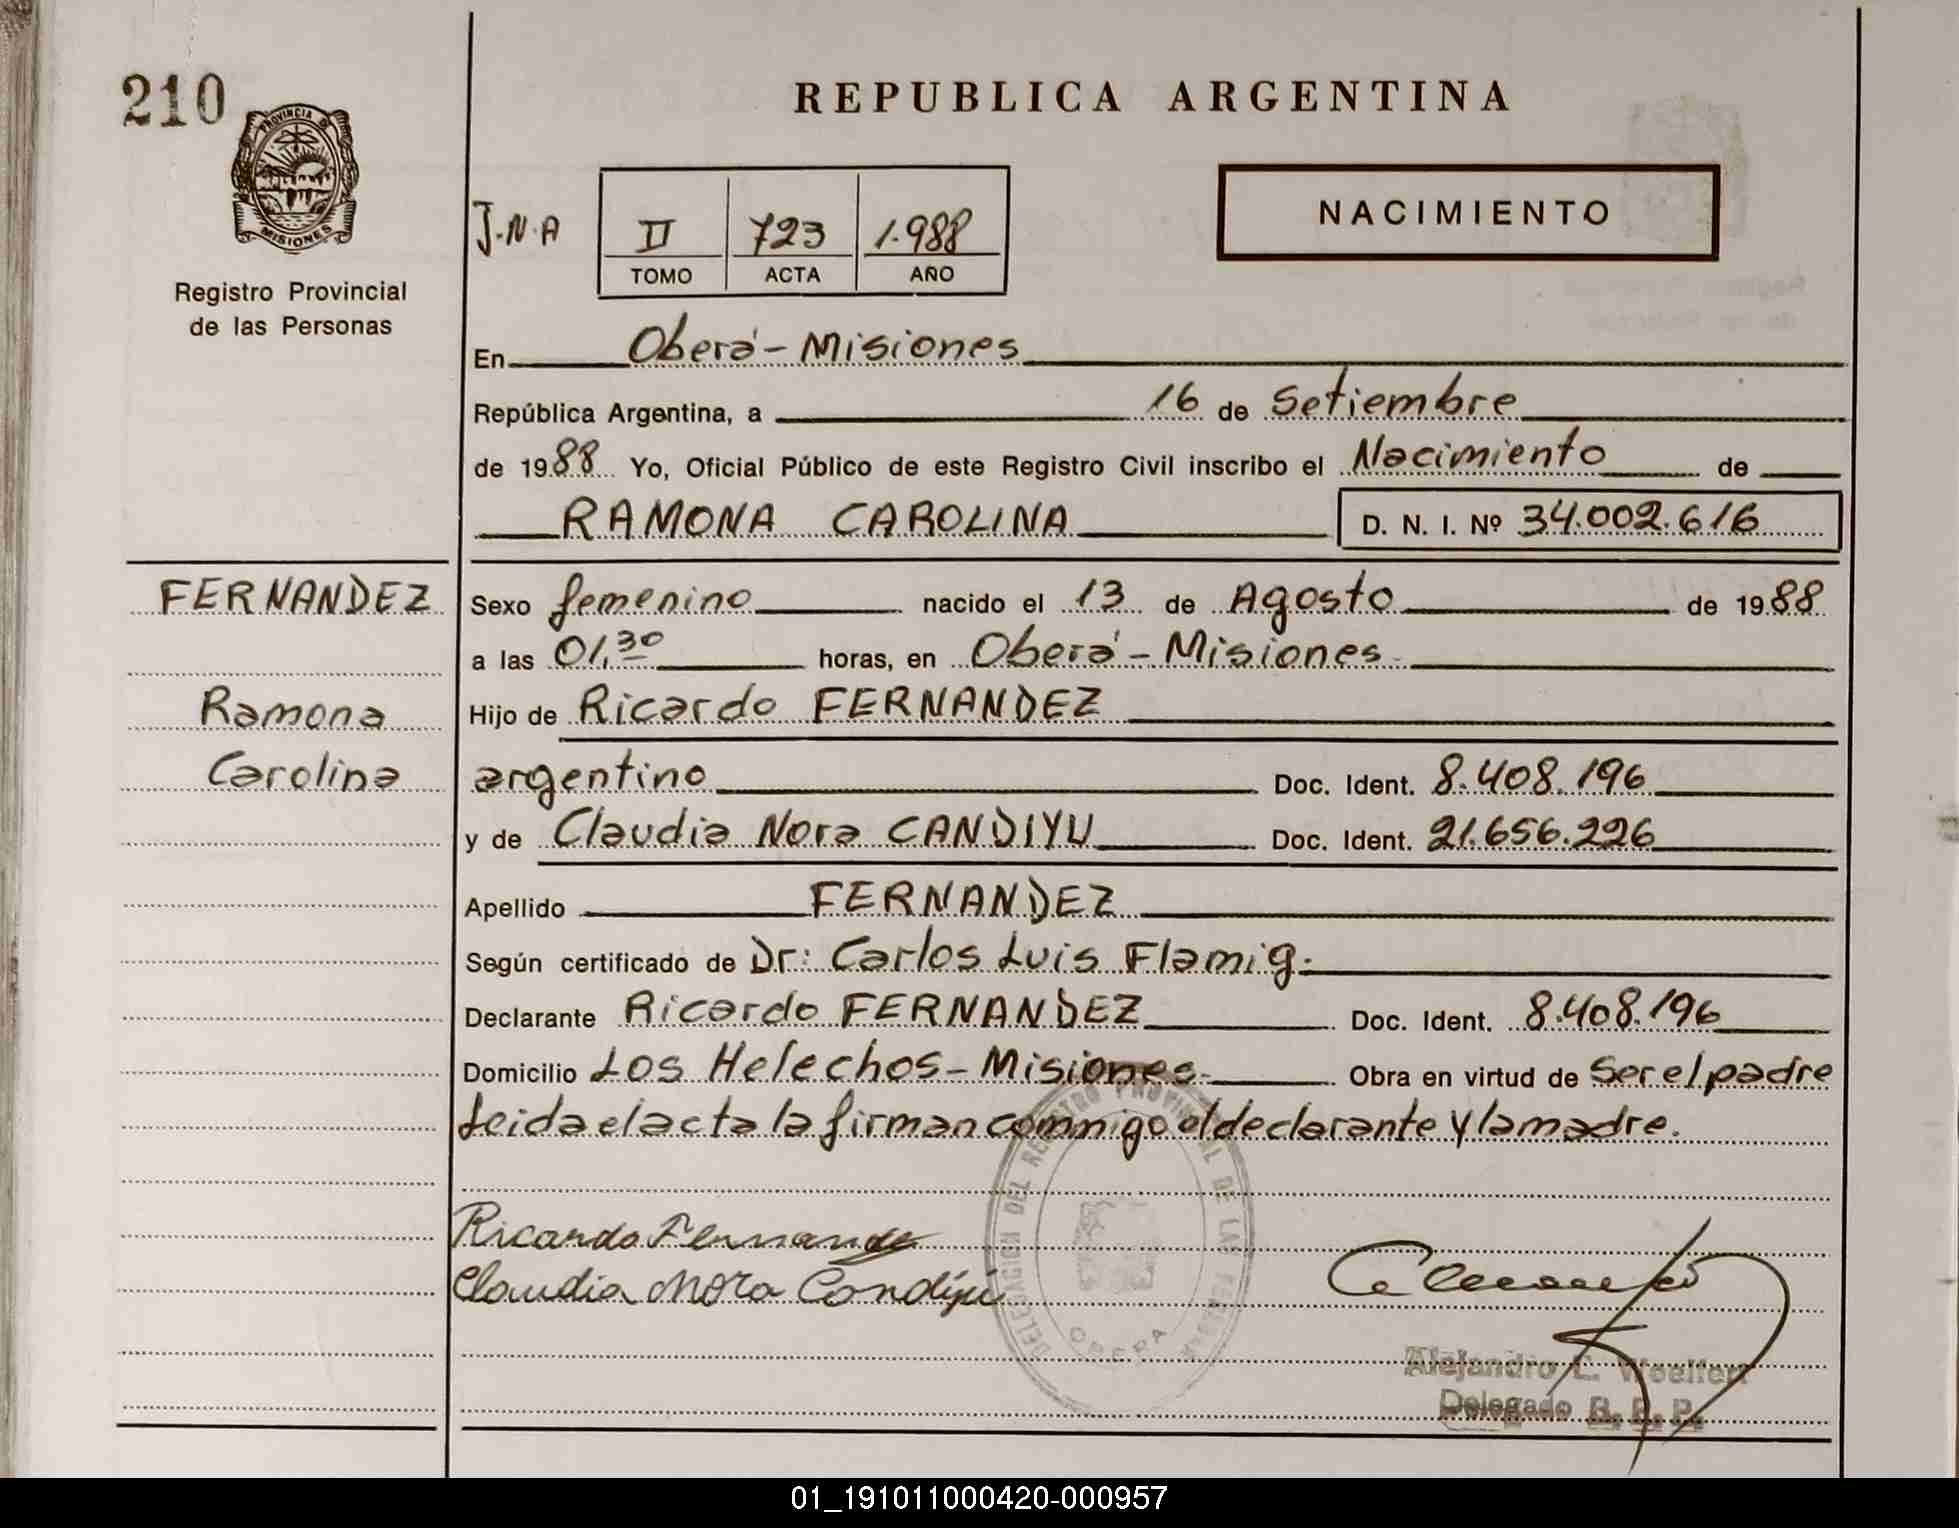 210
PROVINCIA D
MISIONES
Registro Provincial
de las Personas
REPUBLICA ARGENTINA
J.N.A
II 723 1.988
TOMO ACTA AÑO
NACIMIENTO
En Oberá - Misiones
República Argentina, a 16 de Setiembre
de 1988 Yo, Oficial Público de este Registro Civil inscribo el Nacimiento de
RAMONA CAROLINA D. N. I. Nº 34.002.616
FERNANDEZ
Ramona
Carolina
Sexo femenino nacido el 13 de Agosto de 1988
a las 01,30 horas, en Oberá - Misiones
Hijo de Ricardo FERNANDEZ
argentino Doc. Ident. 8.408.196
y de Claudia Nora CANDIYU Doc. Ident. 21.656.226
Apellido FERNANDEZ
Según certificado de Dr: Carlos Luis Flamig.
Declarante Ricardo FERNANDEZ Doc. Ident. 8.408.196
Domicilio Los Helechos - Misiones Obra en virtud de ser el padre
Leida el acta la firman conmigo el declarante y la madre.
DELEGACION DEL REGISTRO PROVINCIAL DE LAS
OBERA
Ricardo Fernandez
Claudia Nora Condiyú
Alejandro C. Woelfert
Delegado R. P. P.
01_191011000420-000957